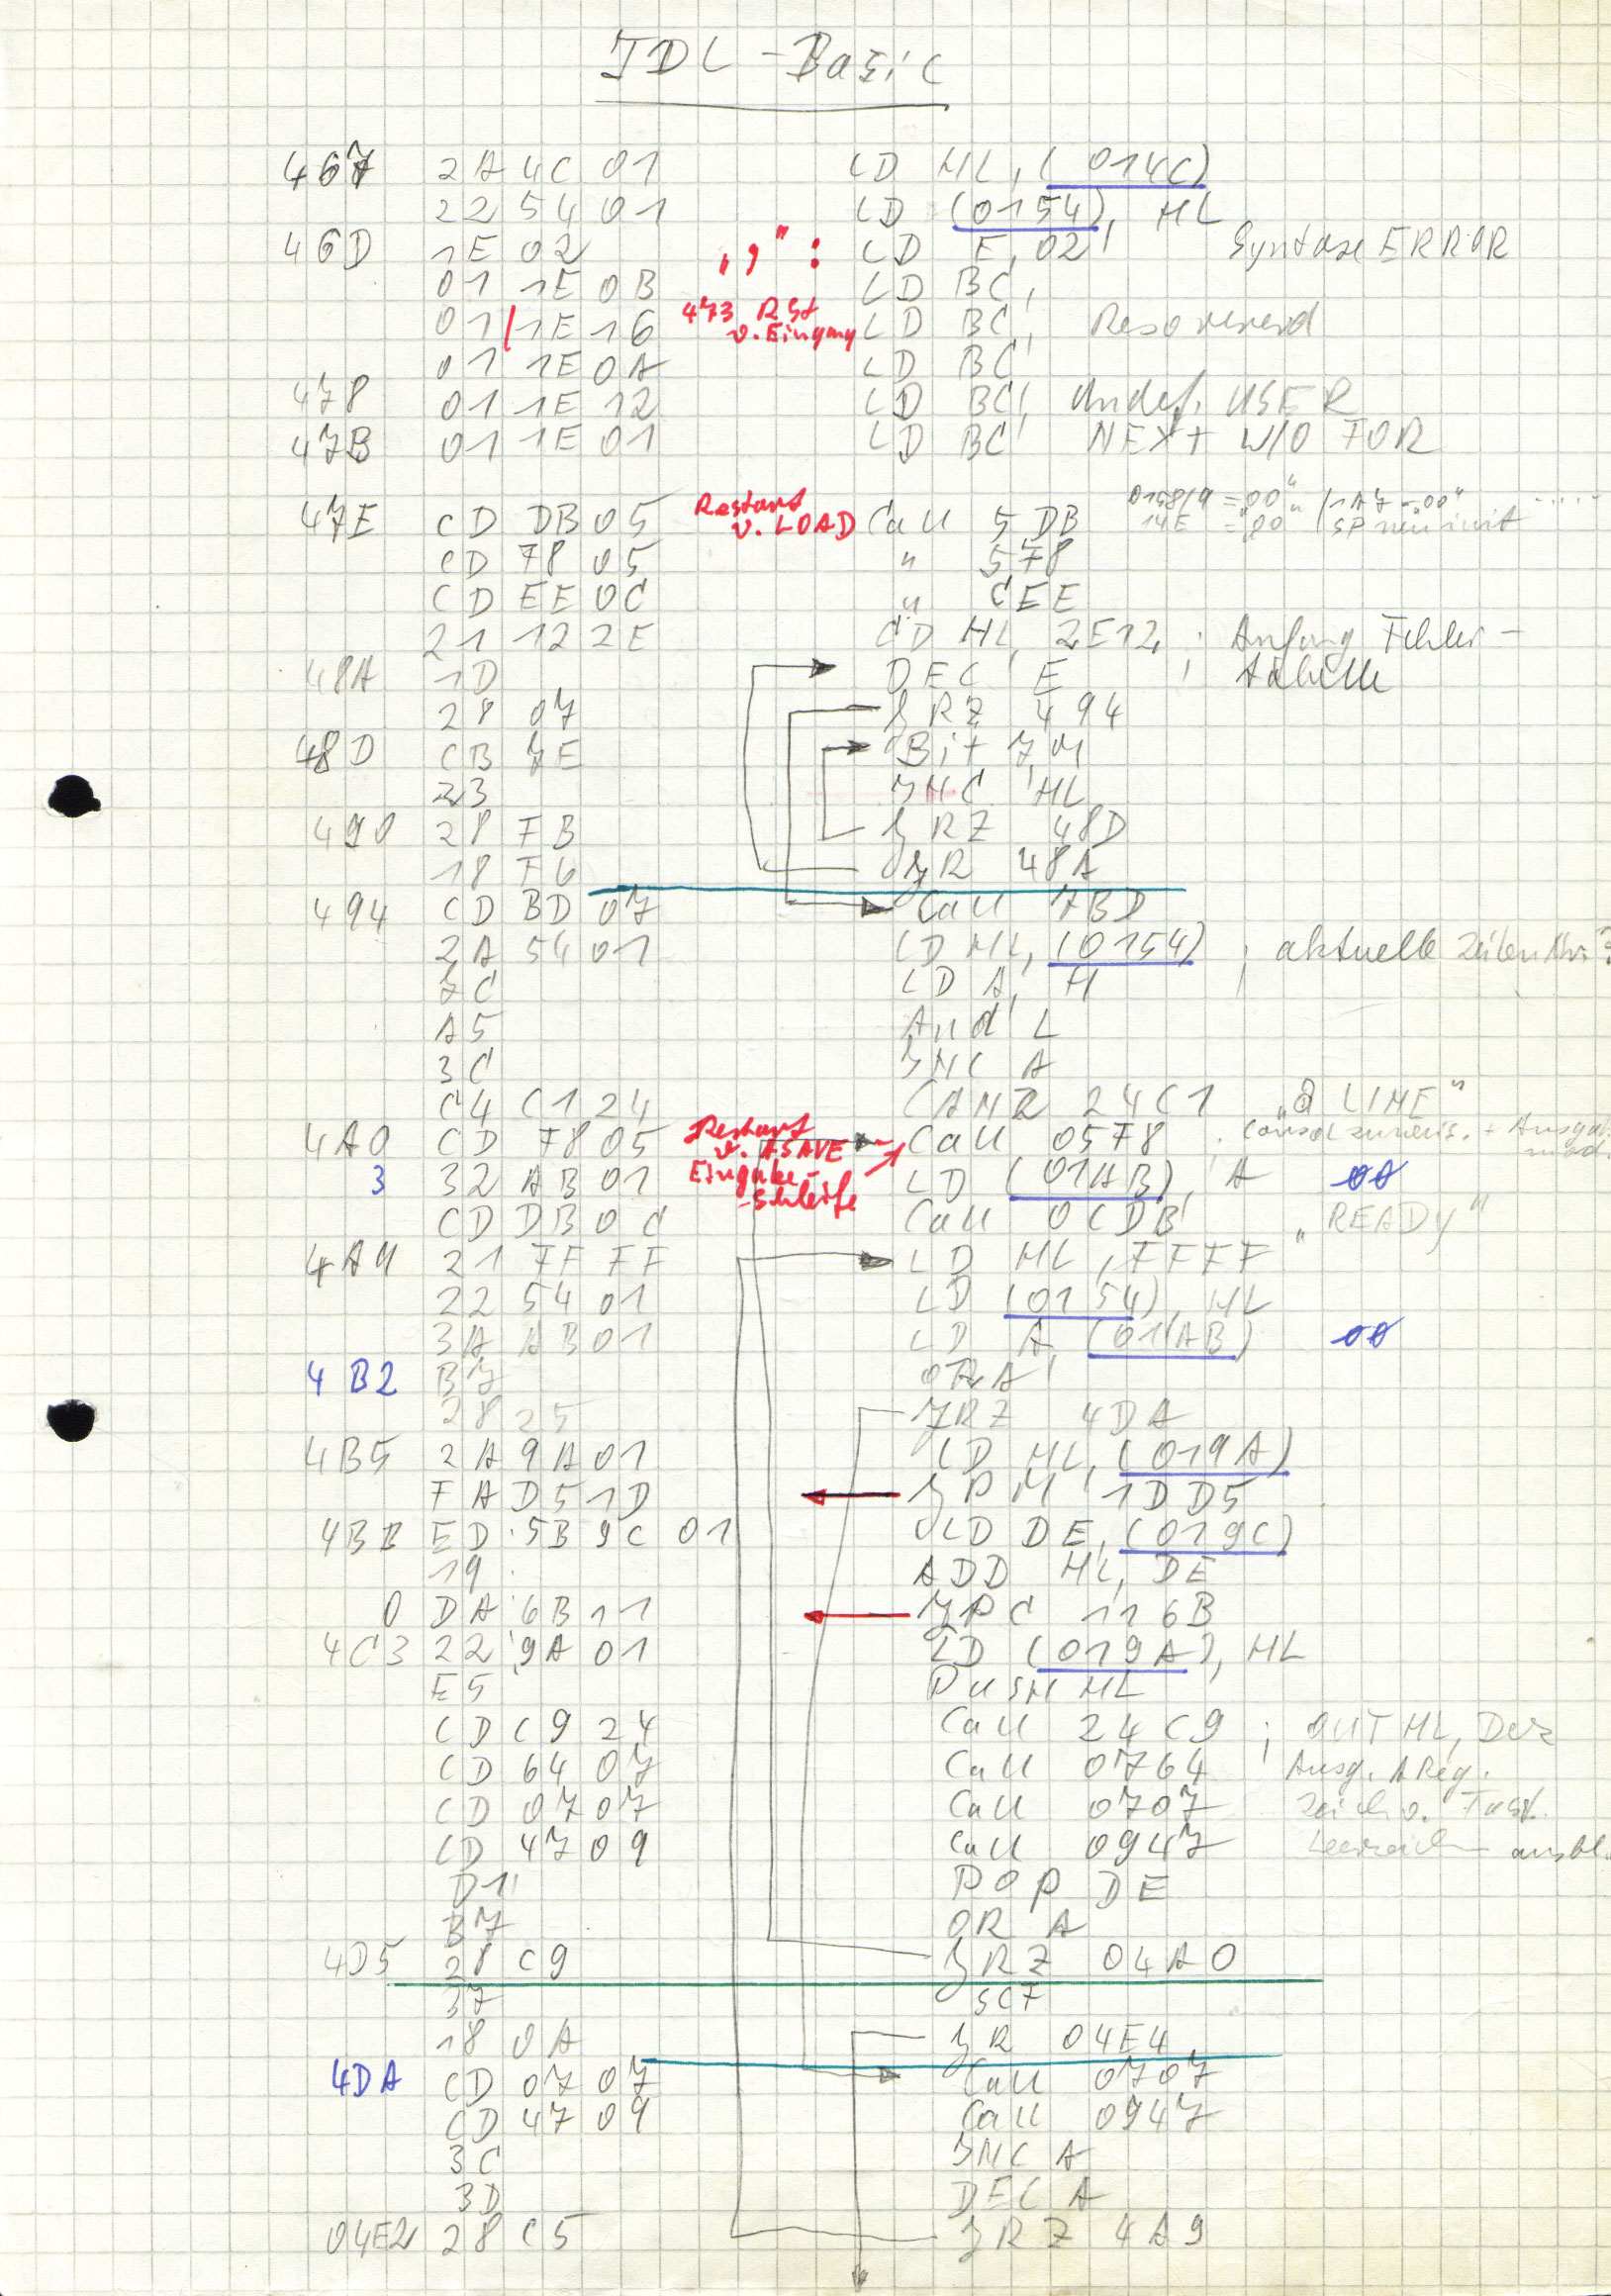 TDL - Basic
467 2A 4C 01 LD HL, (014C)
22 54 01 LD (0154), HL
46D 1E 02 „9“: LD E, 02 Syntax ERROR
01 1E 0B LD BC,
01/1E 16 473 RST v. Eingang LD BC,
01 1E 0A LD BC
478 01 1E 12 LD BC, Undef. USER
47B 01 1E 01 LD BC NEXT W/O FOR
47E CD DB 05 Restart v. LOAD Call 5DB
CD 78 05 " 578
CD EE 0C " CEE
21 12 2E LD HL, 2E12 ; Anfang Fehler-
48A 1D DEC E ; tabelle
28 07 JRZ 494
48D CB 7E Bit 7, M
23 INC HL
490 28 FB JRZ 48D
18 F6 JR 48A
494 CD BD 07 Call 7BD
2A 54 01 LD HL, (0154) ; aktuelle ZeilenNr?
7C LD A, H
A5 And L
3C INC A
C4 C1 24 CANZ 24C1 „@ LINE“
4A0 CD 78 05 Restart v. ASAVE Call 0578
3 32 AB 01 Eingabe- LD (01AB), A 00
CD DB 0C -schleife Call 0CDB „READY“
4A9 21 FF FF LD HL, FFFF
22 54 01 LD (0154), HL
3A AB 01 LD A, (01AB) 00
4B2 B7 ORA
28 25 JRZ 4DA
4B5 2A 9A 01 LD HL, (019A)
FA D5 1D JPM 1DD5
4BB ED 5B 9C 01 LD DE, (019C)
19 ADD HL, DE
0 DA 6B 11 JPC 116B
4C3 22 9A 01 LD (019A), HL
E5 PUSH HL
CD C9 24 Call 24C9 ; OUT HL, Dez
CD 64 07 Call 0764 ; Ausg. A Reg.
CD 07 07 Call 0707 Zeich v. Tast.
CD 47 09 Call 0947
D1 POP DE
B7 OR A
4D5 28 C9 JRZ 04A0
37 SCF
18 0A JR 04E4
4DA CD 07 07 Call 0707
CD 47 09 Call 0947
3C INC A
3D DEC A
04E2 28 C5 JRZ 4A9